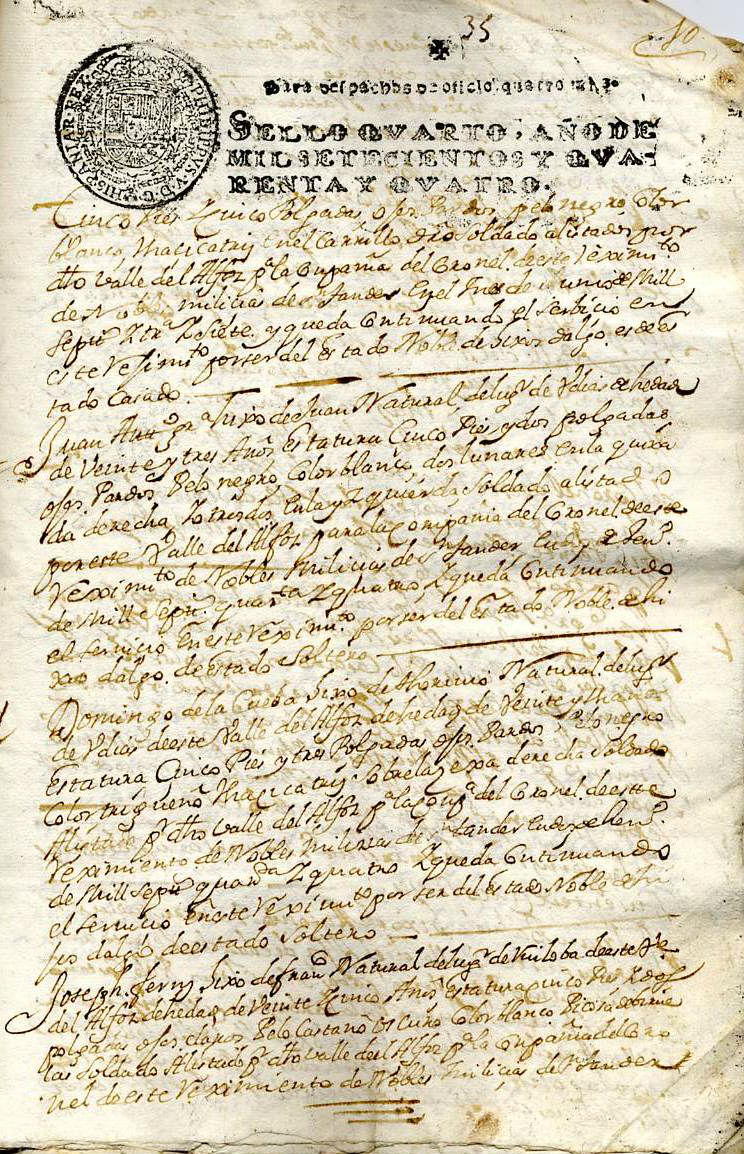 35
10
PHILIPPUS V D G HISPANIAR REX
Para despachos de oficio quatro mrs.
SELLO QVARTO, AÑO DE
MIL SETECIENTOS Y QVA-
RENTA Y QVATRO.
Cinco Pies Zinco Polgadas ojos Pardos, pelo negro Color
blanco, Una Cicatriz enel Carrillo dro Soldado alistado por
dho Valle del Alfoz pa la Conpañia del Coronel de este Reximto
de Nobles milicias de Sn tander Enel mes de Junio de Mill
Septs Ztra Zsiete, y queda Continuando el Serbicio en
este Reximto por ser del Estado Noble de hixos dalgo es de es
tado Casado.
Juan hixo de Juan Natural, del lugr de Udias de hedad
de Veinte y tres Años Estatura Cinco Pies y dos polgadas
ojos Pardos Pelo negro, Color blanco dos lunares En la quixa
da derecha, Zotros dos En la Yzquierda Soldado alistado
por este Valle del Alfoz para la Compania del Coronel de este
Reximto de Nobles Milicias de Sn tander
de Mill Septs quarta Zquatro Zqueda Continuando
el servicio En este Reximto por ser del Estado Noble de hi
xos dalgo, de Estado Soltero
Domingo de la Cueba hixo de Natural, del lugr
de Udias de este Valle del Alfoz de hedad de Veinte y Un años
Estatura Cinco Pies y tres Polgadas ojos Pardos, Pelo negro
Color trigueño Una Cicatriz Sobre la Zexa derecha Soldado
Alistado pr dho Valle del Alfoz pa la Conpa del Coronel de este
Reximiento de Nobles Milizias de Sn tander
de Mill Septs quarda Zquatro Zqueda Continuando
el servicio En este Reximto por ser del Estado Noble de hi
jos dalgo de estado Soltero
Joseph hixo de Franco Natural del lugr de de este Ve
del Alfoz de hedad de Veinte Zcinco Años Estatura cinco Pies Zdos
polgadas ojos claros Pelo Castaño Oscuro Color blanco
las Soldado Alistado pr dho Valle del Alfoz pa la Conpañia del Coro
nel de este Reximiento de Nobles Milicias de Sn tander